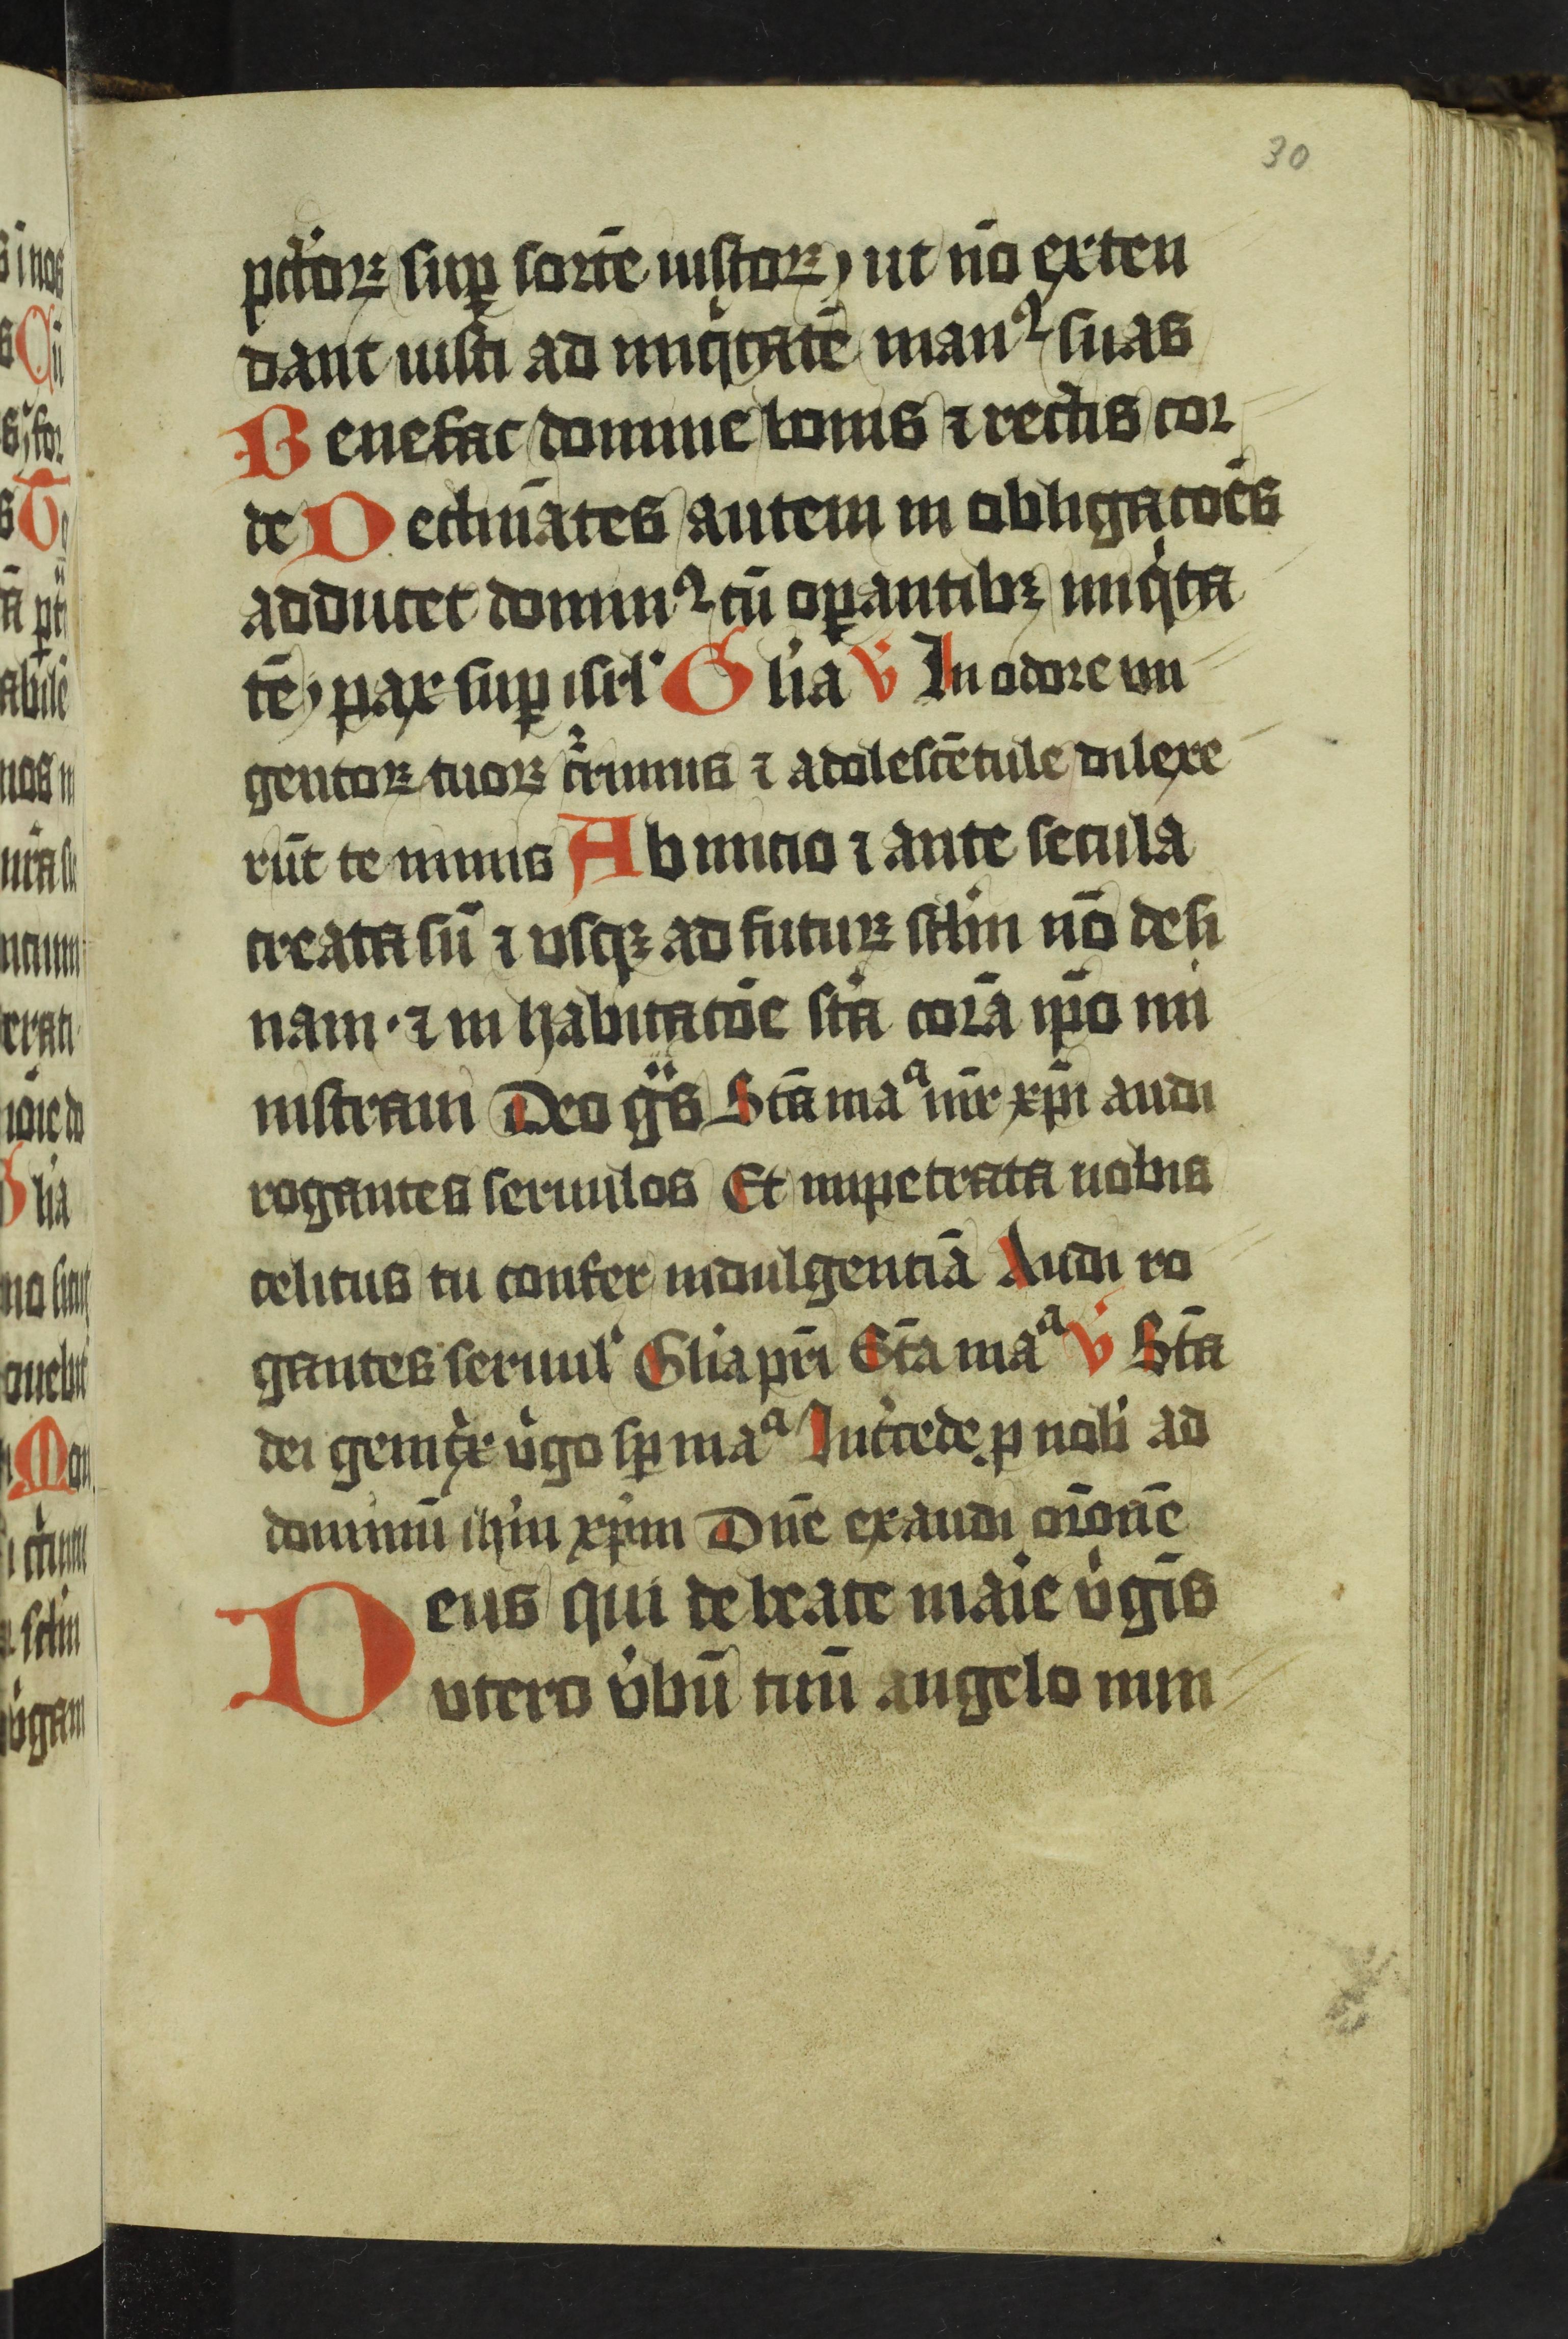 30
pctōrꝝ sup̱ sortē iustoꝝ, ut nō exten
dant iusti ad iniqͥtatē manꝰ suas
Benefac domine bonis ⁊ rectis cor
de Declināntes autem in obligacōēs
adducet dominꝰ cū oꝑantibꝫ iniqͥta
tē, pax suꝑ isrl' Glīa v̓ In odore un
gentoꝝ tuoꝝ cͬrimus ⁊ adolescētule dilexe
rūt te nimis Ab inicio ⁊ ante secula
creata sū ⁊ vsqꝫ ad futuꝝ sclm̄ nō desi
nam · ⁊ in habitacōē stā corā ip̄o mi
nistraui Deo gͥas Stā maᵃ mr̄ xp̄i audi
rogantes seruulos Et impetrata nobis
celitus tu confer indulgentiā Audi ro
gantes seruul' Glia pri̅ Stā maᵃ v̓ Stā
dei genitͥx v̓go sꝑ maᵃ Int̓cede p̱ nob̓ ad
dominū ihm̄ xpm̄ Dn̄e exaudi or̄onē
Deus qui de beate marie v̓gīs
vtero v̓bū tuū angelo nun